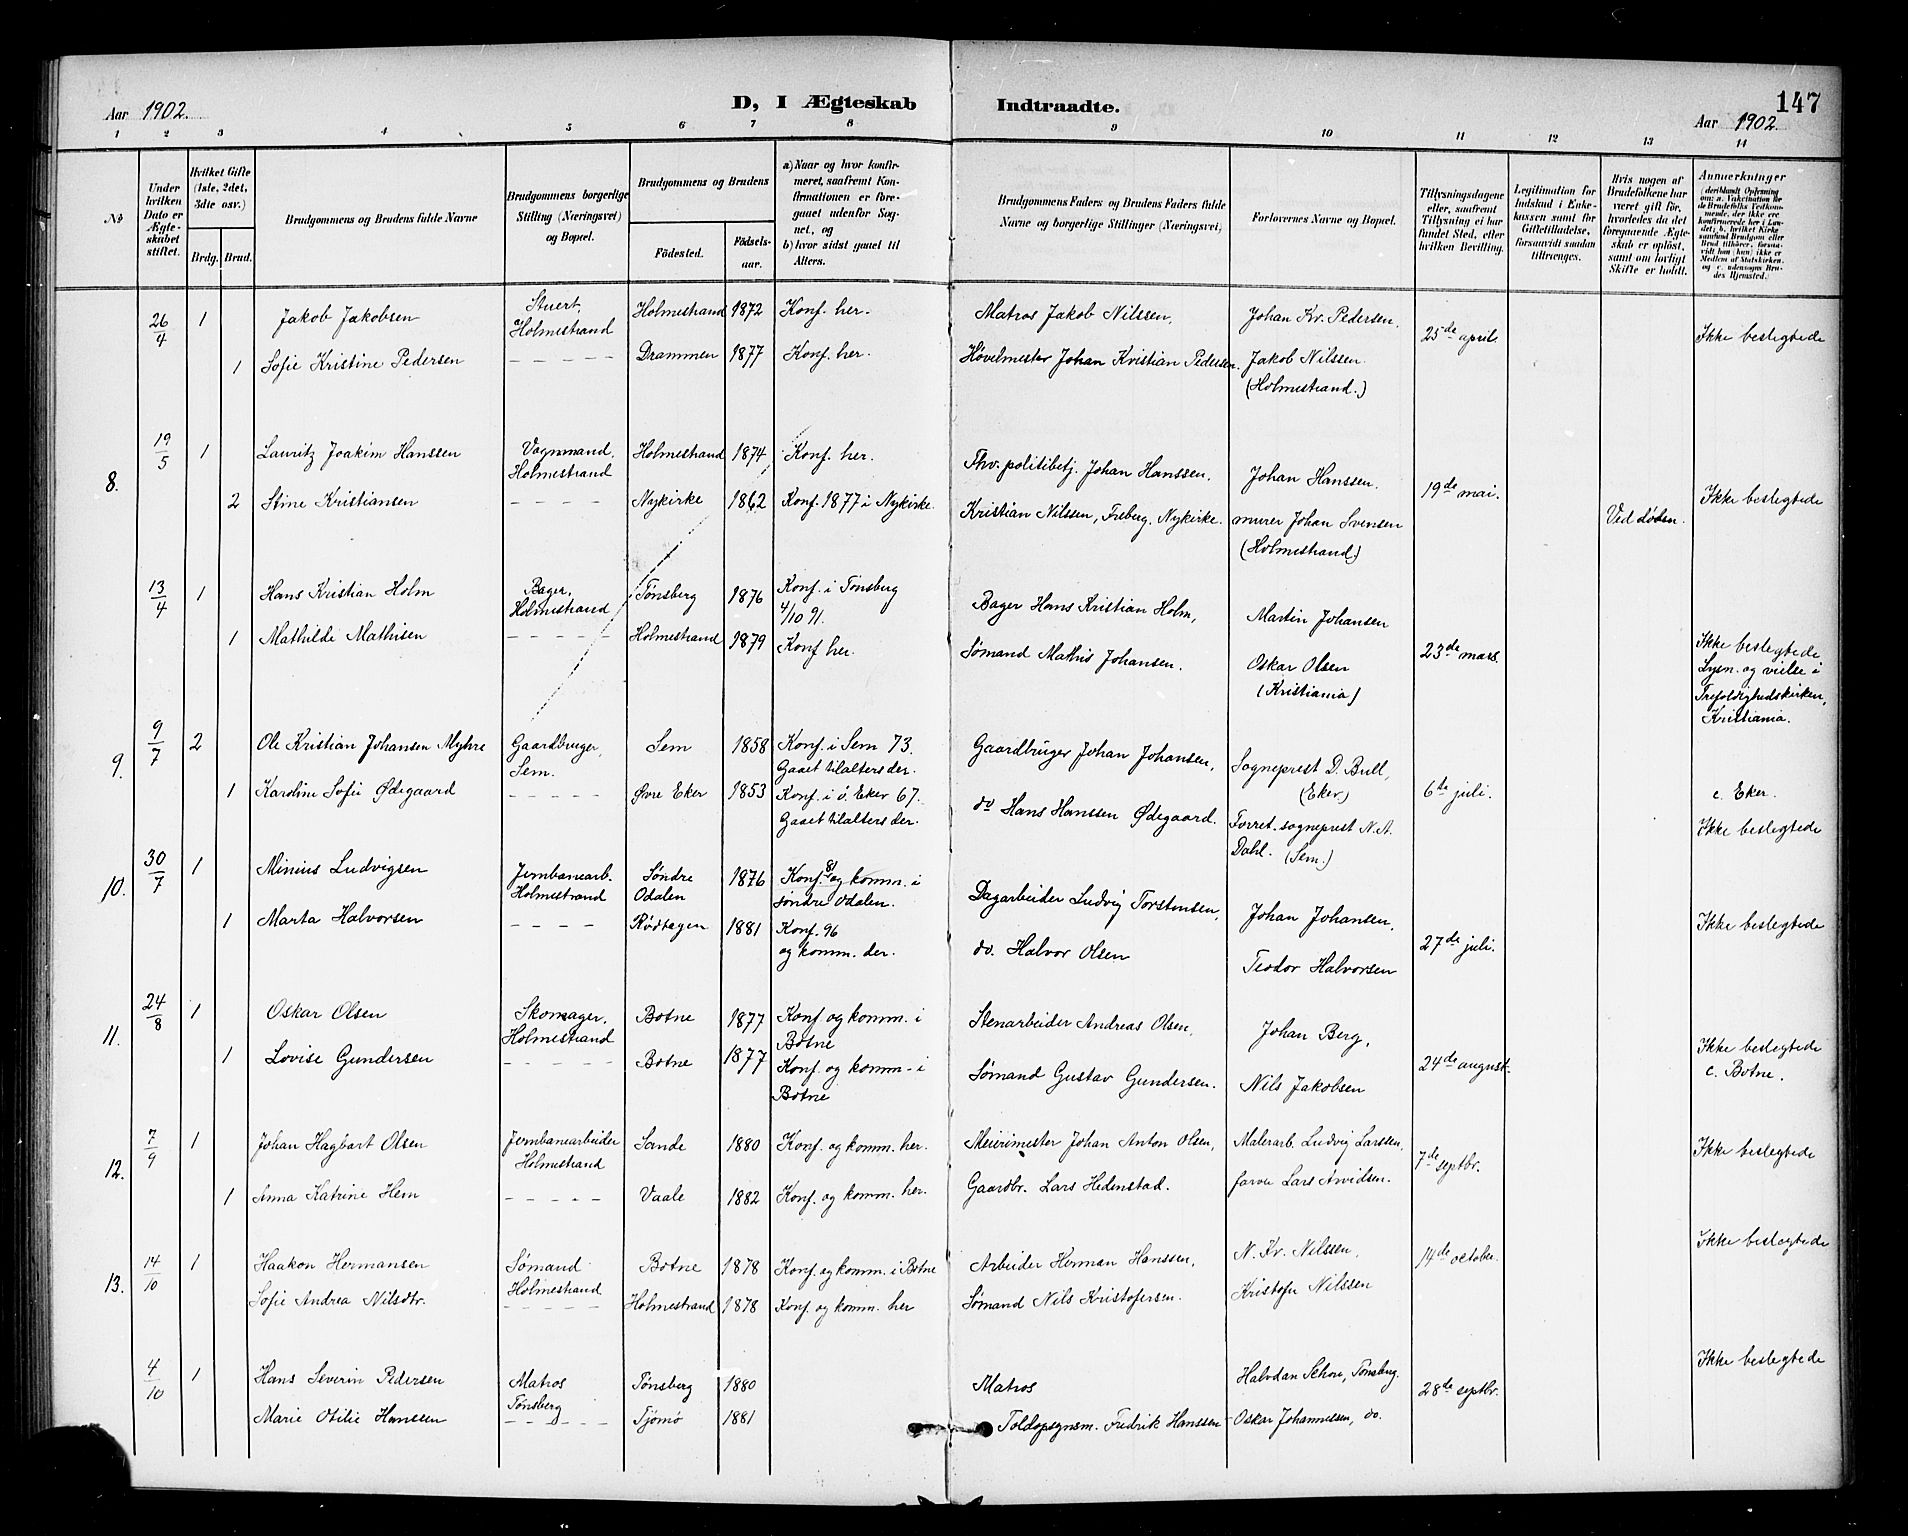 Aar 1902. D, I Ægteskab Indtraadte. 147
Aar 1902.
1 2 3 4 5 6 7 8 9 10 11 12 13 14
No
Under hvilken Dato er Ægteskabet stiftet.
Hvilket Gifte (1ste, 2det, 3die osv.)
Brdg. Brud.
Brudgommens og Brudens fulde Navne
Brudgommens borgerlige Stilling (Næringsvei) og Bopæl.
Brudgommens og Brudens
Fødested. Fødselsaar.
a) Naar og hvor konfirmeret, saafremt Konfirmationen er foregaaet udenfor Sognet, og
b) hvor sidst gaaet til Alters.
Brudgommens Faders og Brudens Faders fulde Navne og borgerlige Stillinger (Næringsvei)
Forlovernes Navne og Bopæl.
Tillysningsdagene eller, saafremt Tillysning ei har fundet Sted, efter hvilken Bevilling.
Legitimation for Indskud i Enkekassen samt for Giftetilladelse, forsaavidt saadan tiltrænges.
Hvis nogen af Brudefolkene har været gift før, hvorledes da det foregaaende Ægteskab er opløst, samt om lovligt Skifte er holdt.
Anmærkninger
(deriblandt Oplysning om: a. Vaccination for de Brudefolks Vedkommende, der ikke ere konfirmerede her i Landet; b. hvilket Kirkesamfund Brudgom eller Brud tilhører, forsaavidt han (hun) ikke er Medlem af Statskirken, og c. udensogns Brudes Hjemsted.
26/4 1 Jakob Jakobsen Stuert, Holmestrand Holmestrand 1872 Konf. her. Matros Jakob Nilssen, Johan Kr. Pedersen, 25de april Ikke beslegtede
1 Sofie Kristine Pedersen – – – – – Drammen 1877 Konf. her. Høvelmester Johan Kristian Pedersen. Jakob Nilssen.
(Holmestrand.)
8. 19/5 1 Lauritz Joakim Hanssen Vognmand, Holmestrand Holmestrand 1874 Konf. her. Fhv. politibetj. Johan Hanssen, Johan Hanssen. 19de mai. Ikke beslegtede
2 Stine Kristiansen – – – – Nykirke 1862 Konf. 1877 i Nykirke. Kristian Nilssen, Freberg, Nykirke. murer Johan Svensen Ved døden.
(Holmestrand)
13/4 1 Hans Kristian Holm Bager, Holmestrand Tønsberg 1876 Konf. i Tønsberg 4/10 91. Bager Hans Kristian Holm, Martin Johansen 23de mars.
1 Mathilde Mathisen – – – – – Holmestrand 1879 Konf her. Sømand Mathis Johansen. Oskar Olsen
(Kristiania)
Ikke beslegtede
Lysn. og vielse i
Trefoldighedskirken,
Kristiania.
9. 9/7 2 Ole Kristian Johansen Myhre Gaardbruger, Sem. Sem 1858 Konf. i Sem 73. Gaaet tilalters der. Gaardbruger Johan Johansen, Sogneprest D. Bull, (Eker) 6te juli. c. Eker.
1 Karoline Sofie Ødegaard – – – – – Øvre Eker 1853 Konf. i ö. Eker 67. Gaaet tilalters der. do Hans Hanssen Ødegaard. Forret. sogneprest N. A. Dahl. (Sem.) Ikke beslegtede
10. 30/7 1 Minius Ludvigsen Jernbanearb. Holmestrand Søndre Odalen 1876 Konf. 81 og komm. i søndre Odalen. Dagarbeider Ludvig Torstensen, Johan Johansen, 27de juli. Ikke beslegtede
1 Marta Halvorsen – – – – Rødtagen 1881 Konf. 96 og komm. der. do. Halvor Olsen Teodor Halvorsen
11. 24/8 1 Oskar Olsen Skomager, Holmestrand Botne 1877 Konf og komm. i Botne Stenarbeider Andreas Olsen, Johan Berg, 24de august. Ikke beslegtede
1 Lovise Gundersen – – – – – Botne 1877 Konf. og komm. i Botne Sømand Gustav Gundersen. Nils Jakobsen c. Botne.
12. 7/9 1 Johan Hagbart Olsen Jernbanearbeider Holmestrand Sande 1880 Konf. og komm. her. Meierimester Johan Anton Olsen, Malerarb. Ludvig Larssen, 7de septbr. Ikke beslegtede
1 Anna Katrine Hem – – – – – Vaale 1882 Konf. og komm. her. Gaardbr. Lars Hedenstad. farver Lars Arvidsen.
13. 14/10 1 Haakon Hermansen Sømand Holmestrand Botne 1878 Konf. og komm. i Botne Arbeider Herman Hanssen, N. Kr. Nilssen, 14de october. Ikke beslegtede
Sofie Andrea Nilsdtr. – – – – – Holmestrand 1878 Konf. og komm. her Sømand Nils Kristofersen. Kristofer Nilssen
4/10 1 Hans Severin Pedersen Matros Tønsberg Tønsberg 1880 Matros Halvdan Schou, Tønsberg. 28de septbr. Ikke beslegtede
Marie Otilie Hanssen – – – – – Tjømø 1881 Toldopsynsm. Fredrik Hanssen Oskar Johannessen, do.